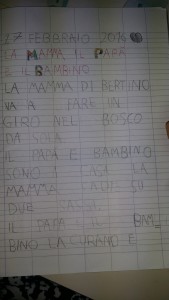 17 FEBBRAIO 2016
LA MAMMA IL PAPÀ
E IL BAMBINO
LA MAMMA DI BERTINO
VA A FARE IN
GIRO NEL BOSCO
DA SOLA
IL PAPÀ E BAMBINO
SONO I CASA LA
MAMMA CADE SU
DUE SASSI
IL PAPÀ IL BAM_
BINO LA CURANO E